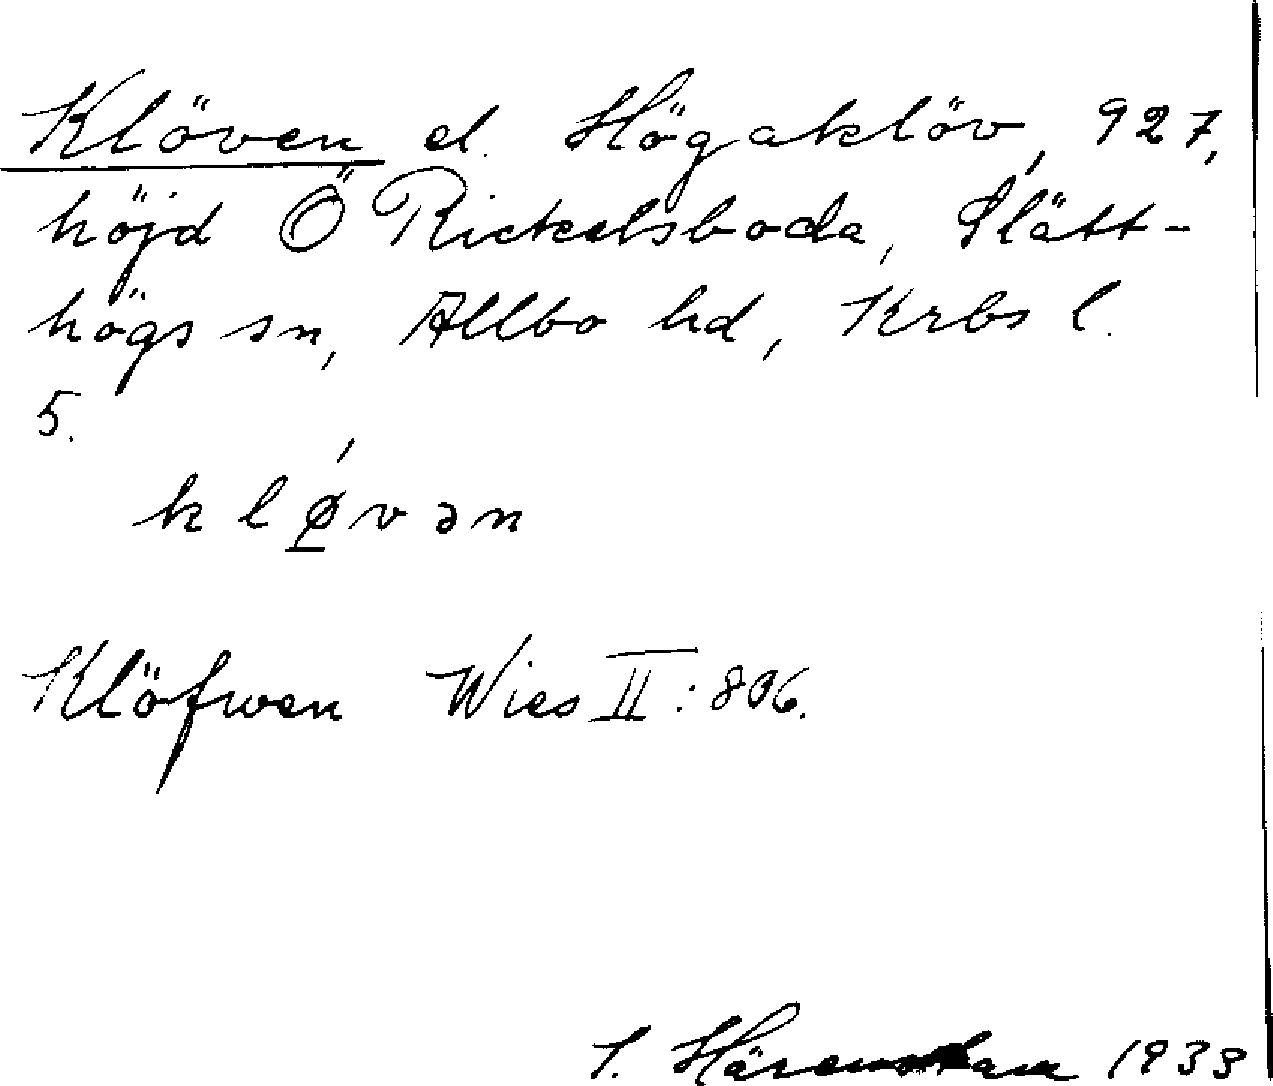 Klöven el. Högaklöv, 927,
höjd Ö Rickelsboda, Slätt-
högs sn, Allbo hd, Krbs l.
5.
klǿ̱vən
Klöfwen Wies II:806.
S. Härenstam 1933